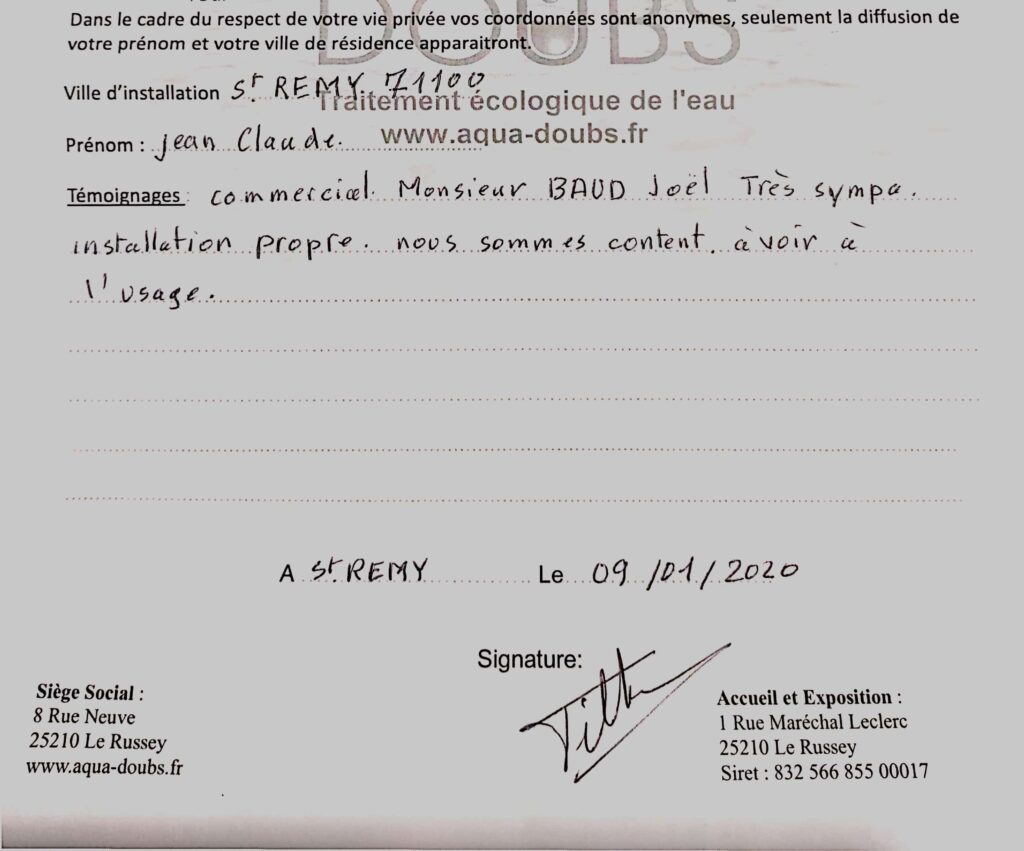 Dans le cadre du respect de votre vie privée vos coordonnées sont anonymes, seulement la diffusion de
votre prénom et votre ville de résidence apparaitront.
DOUBS
Ville d'installation St REMY. 71100
Traitement écologique de l'eau
Prénom : jean Claude.
www.aqua-doubs.fr
Témoignages : commercial. Monsieur BAUD Joël Très sympa.
installation propre. nous sommes content. à voir à
l'usage.
A St REMY Le 09 /01/ 2020
Signature:
Siège Social :
8 Rue Neuve
25210 Le Russey
www.aqua-doubs.fr
Accueil et Exposition :
1 Rue Maréchal Leclerc
25210 Le Russey
Siret : 832 566 855 00017